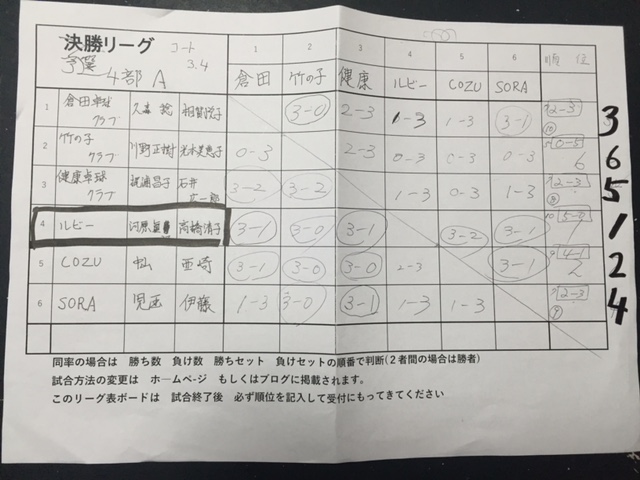 決勝リーグ コート
予選 4部 A 3.4
1 2 3 4 5 6 順位
倉田 竹の子 健康 ルビー COZU SORA
1 倉田卓球クラブ 3-0 2-3 1-3 1-3 3-1 2-3 3
2 竹の子クラブ 0-3 2-3 0-3 0-3 0-3 0-5 6 6
3 健康卓球クラブ 石井 3-2 3-2 1-3 0-3 1-3 2-3 5
4 ルビー 3-1 3-0 3-1 3-2 3-1 5-0 1 1
5 COZU 3-1 3-0 3-0 2-3 3-1 4-1 2 2
6 SORA 伊藤 1-3 3-0 3-1 1-3 1-3 2-3 4
同率の場合は 勝ち数 負け数 勝ちセット 負けセットの順番で判断(2者間の場合は勝者)
試合方法の変更は ホームページ もしくはブログに掲載されます。
このリーグ表ボードは 試合終了後 必ず順位を記入して受付にもってきてください